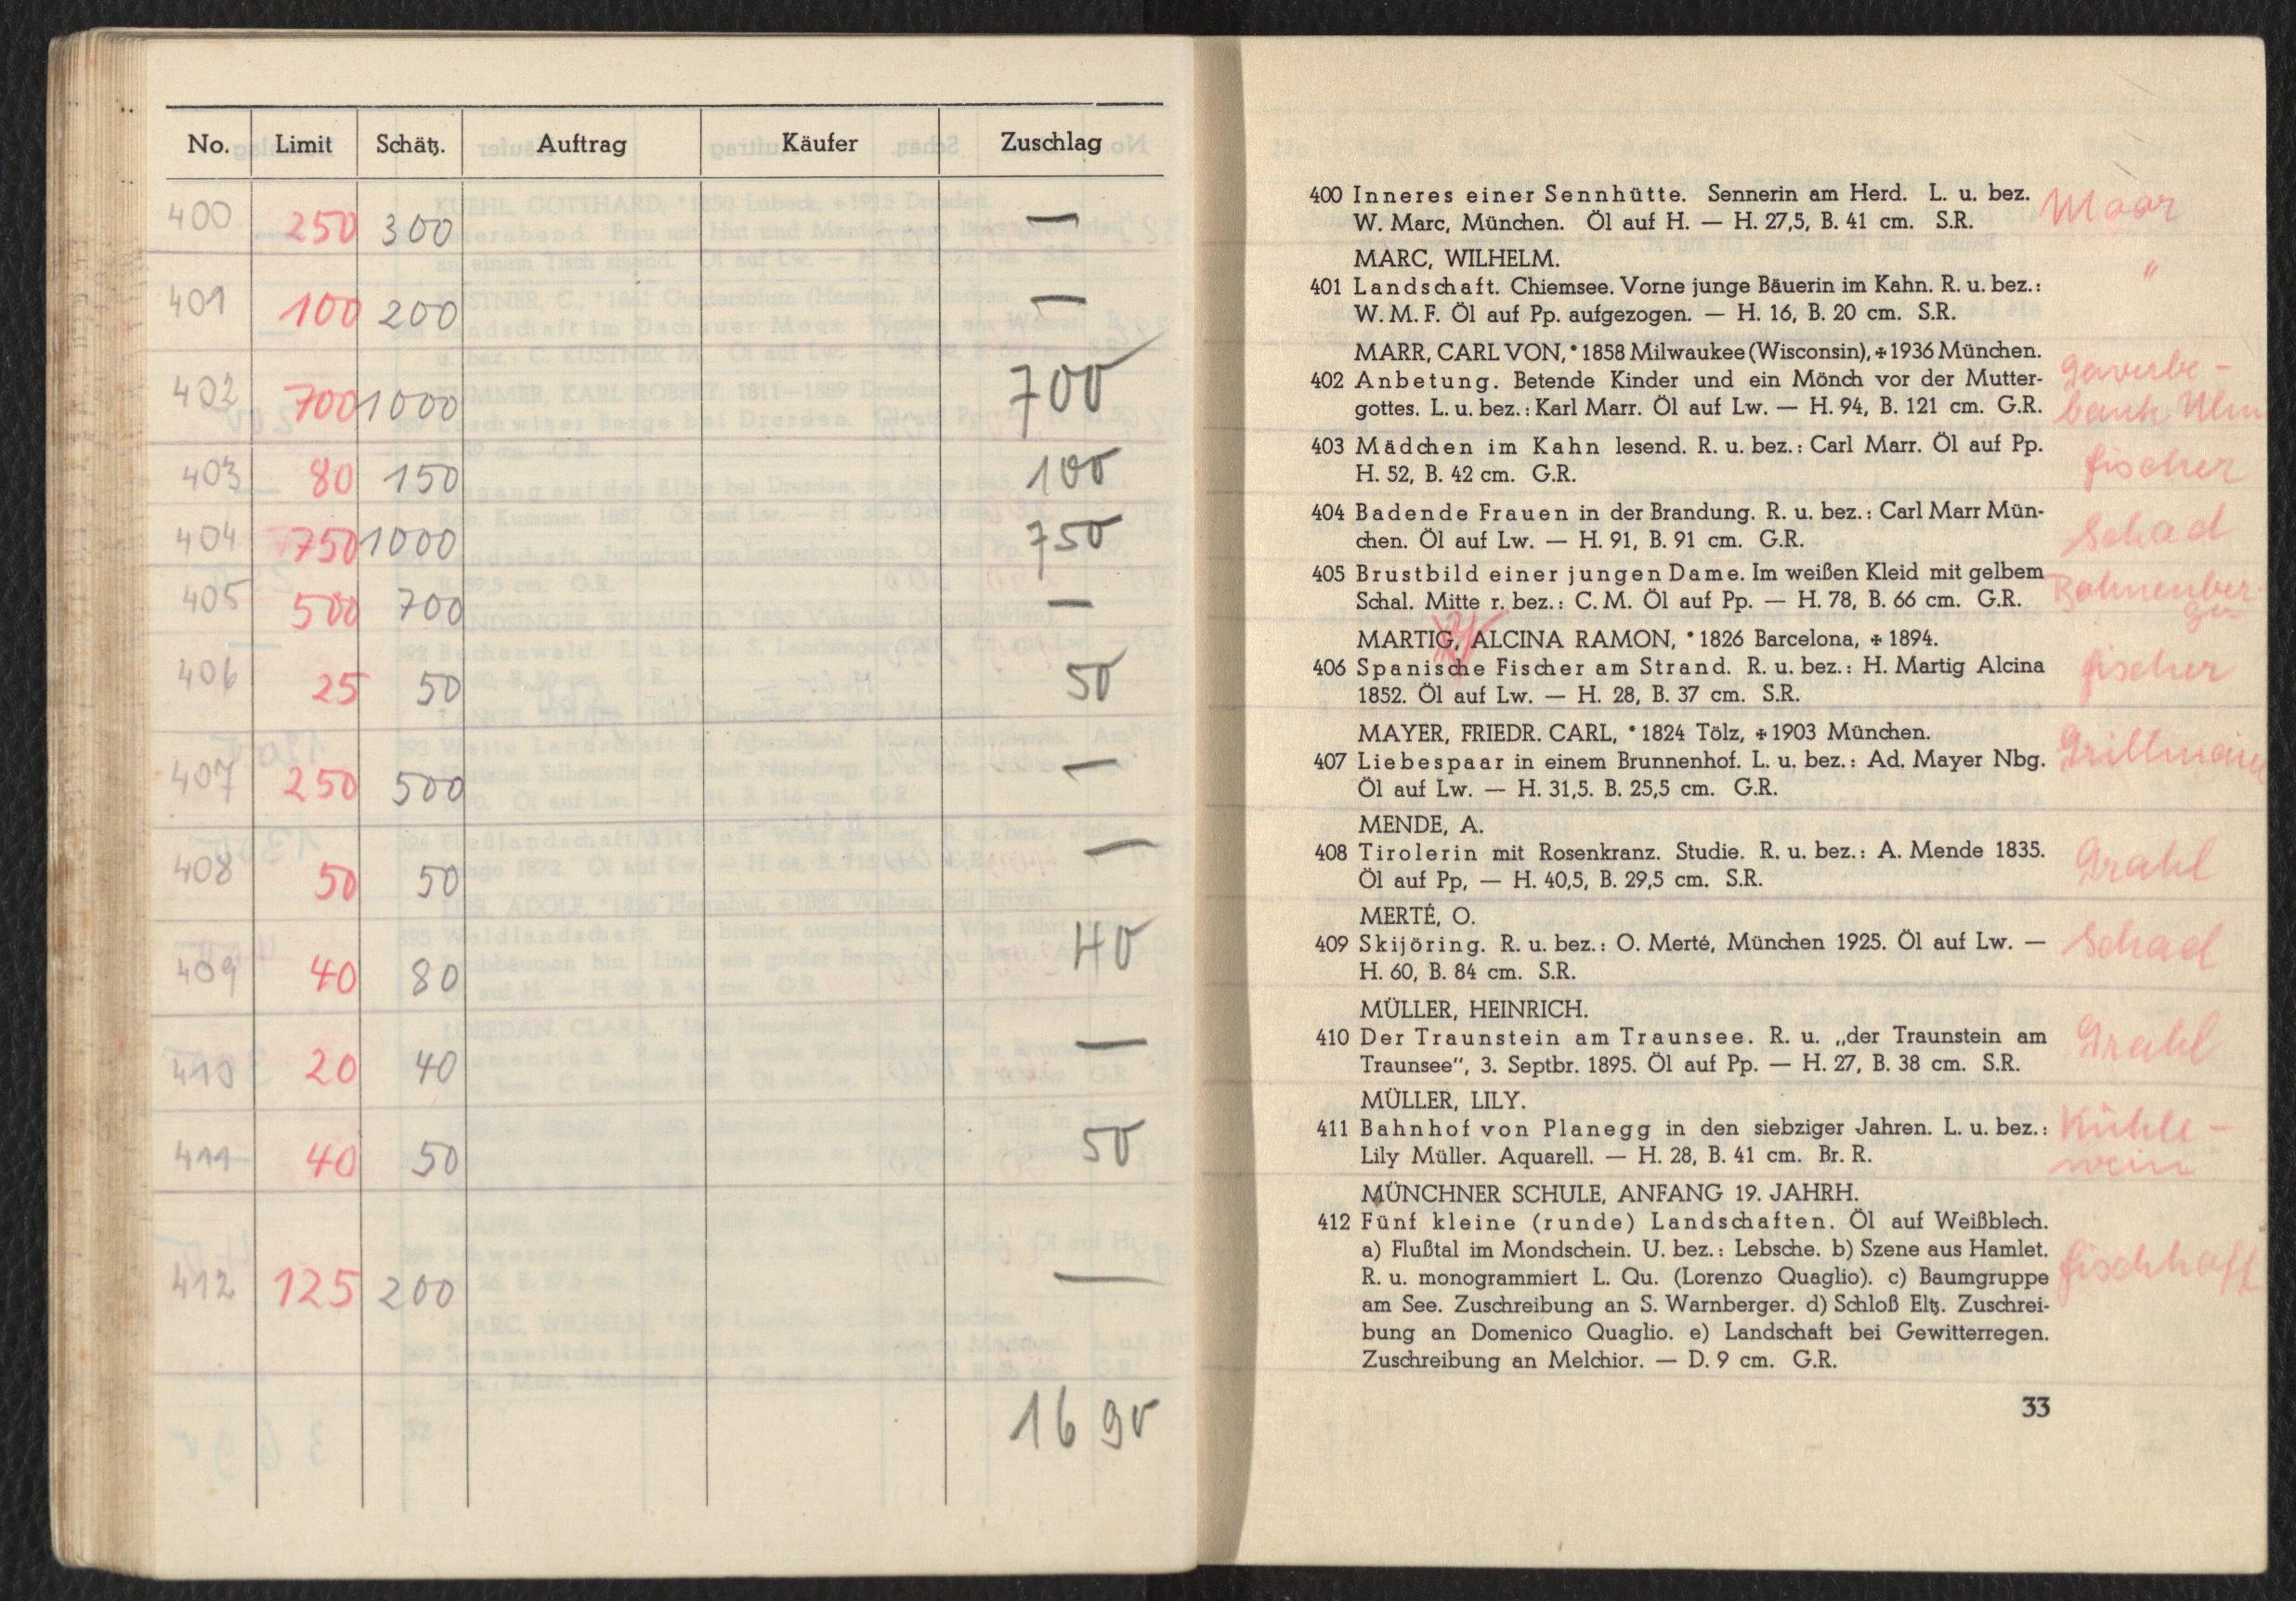 No. Limit Schätz. Auftrag Käufer Zuschlag
400 250 300 —
401 100 200 —
402 700 1000 700
403 80 150 100
404 750 1000 750
405 500 700 —
406 25 50 50
407 250 500 —
408 50 50 —
409 40 80 40
410 20 40 —
411 40 50 50
412 125 200 —
1690
400 Inneres einer Sennhütte. Sennerin am Herd. L. u. bez. Maar
W. Marc, München. Öl auf H. — H. 27,5, B. 41 cm. S.R.
MARC, WILHELM. "
401 Landschaft. Chiemsee. Vorne junge Bäuerin im Kahn. R. u. bez.:
W. M. F. Öl auf Pp. aufgezogen. — H. 16, B. 20 cm. S.R.
MARR, CARL VON, * 1858 Milwaukee (Wisconsin), ✠ 1936 München.
402 Anbetung. Betende Kinder und ein Mönch vor der Mutter- Gewerbe-
gottes. L. u. bez.: Karl Marr. Öl auf Lw. — H. 94, B. 121 cm. G.R. bank Ulm
403 Mädchen im Kahn lesend. R. u. bez.: Carl Marr. Öl auf Pp. Fischer
H. 52, B. 42 cm. G.R.
404 Badende Frauen in der Brandung. R. u. bez.: Carl Marr Mün- Schad
chen. Öl auf Lw. — H. 91, B. 91 cm. G.R.
405 Brustbild einer jungen Dame. Im weißen Kleid mit gelbem Bohnenber-
Schal. Mitte r. bez.: C. M. Öl auf Pp. — H. 78, B. 66 cm. G.R. ger
MARTIG, ALCINA RAMON, * 1826 Barcelona, ✠ 1894.
406 Spanische Fischer am Strand. R. u. bez.: H. Martig Alcina Fischer
1852. Öl auf Lw. — H. 28, B. 37 cm. S.R.
MAYER, FRIEDR. CARL, * 1824 Tölz, ✠ 1903 München.
407 Liebespaar in einem Brunnenhof. L. u. bez.: Ad. Mayer Nbg. Grillmaier
Öl auf Lw. — H. 31,5. B. 25,5 cm. G.R.
MENDE, A.
408 Tirolerin mit Rosenkranz. Studie. R. u. bez.: A. Mende 1835. Grahl
Öl auf Pp, — H. 40,5, B. 29,5 cm. S.R.
MERTÉ, O.
409 Skijöring. R. u. bez.: O. Merté, München 1925. Öl auf Lw. — Schad
H. 60, B. 84 cm. S.R.
MÜLLER, HEINRICH.
410 Der Traunstein am Traunsee. R. u. „der Traunstein am Grahl
Traunsee“, 3. Septbr. 1895. Öl auf Pp. — H. 27, B. 38 cm. S.R.
MÜLLER, LILY.
411 Bahnhof von Planegg in den siebziger Jahren. L. u. bez.: Kühle-
Lily Müller. Aquarell. — H. 28, B. 41 cm. Br. R. wein
MÜNCHNER SCHULE, ANFANG 19. JAHRH.
412 Fünf kleine (runde) Landschaften. Öl auf Weißblech.
a) Flußtal im Mondschein. U. bez.: Lebsche. b) Szene aus Hamlet. Fischhoff
R. u. monogrammiert L. Qu. (Lorenzo Quaglio). c) Baumgruppe
am See. Zuschreibung an S. Warnberger. d) Schloß Eltz. Zuschrei-
bung an Domenico Quaglio. e) Landschaft bei Gewitterregen.
Zuschreibung an Melchior. — D. 9 cm. G.R.
33